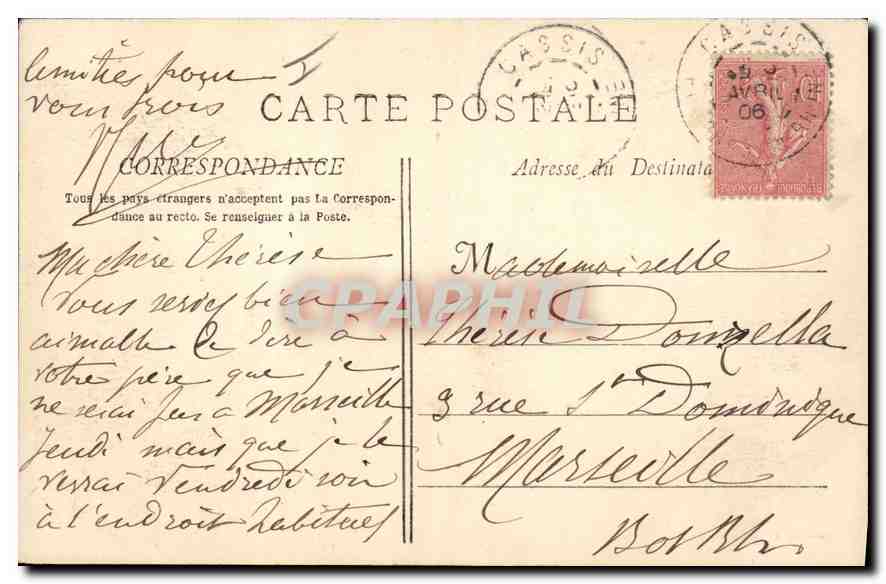 amitiés pour
vous trois
CARTE POSTALE
CORRESPONDANCE
Tous les pays étrangers n'acceptent pas La Correspon-
dance au recto. Se renseigner à la Poste.
Ma chère Thérèse
vous seriez bien
aimable de dire à
votre père que je
ne serai pas à Marseille
jeudi mais que je le
verrai Vendredi soir
à l'endroit habituel
Adresse du Destinata
CASSIS
CASSIS
AVRIL
06
REPUBLIQUE FRANÇAISE
Mademoiselle
Thérèse Donzella
3 rue St Dominique
Marseille
B. du Rh.
CPAPHIL